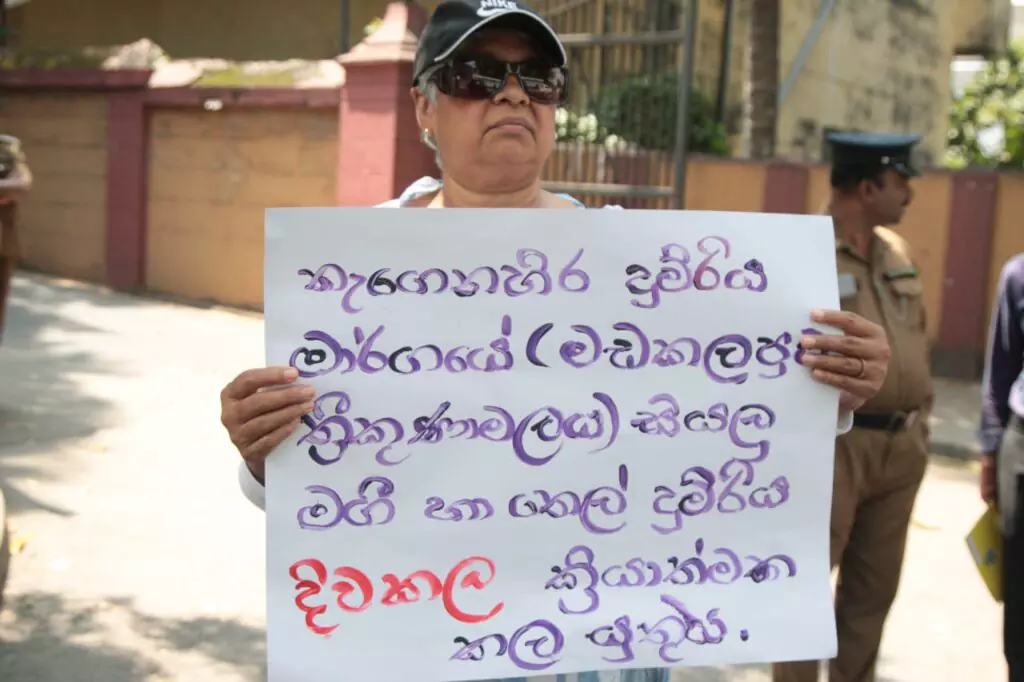 NIKE
කැගෙනහිර දුම්රිය
මාර්ගයේ (මඩකලපුව
ත්‍රීකුණාමලය) සියලු
මගී හා තෙල් දුම්රිය
දිවකල ක්‍රියාත්මක
කල යුතුය.